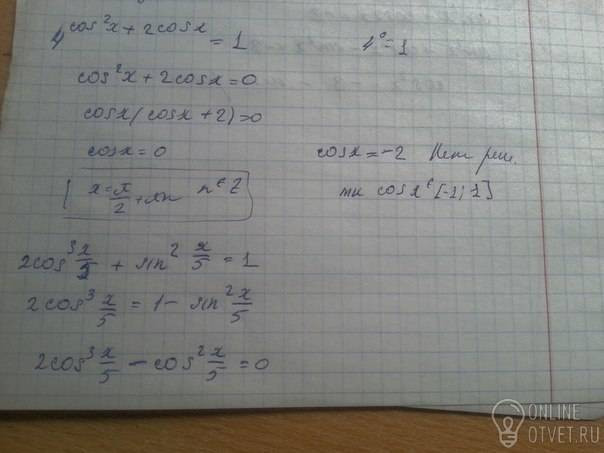 4^(cos²x + 2cosx) = 1    4⁰ = 1
cos²x + 2cosx = 0
cosx(cosx + 2) = 0
cosx = 0    cosx = -2 Нет реш.
x = π/2 + πn n ∈ Z    тк cosx ∈ [-1; 1]
2cos³ x/5 + sin² x/5 = 1
2cos³ x/5 = 1 - sin² x/5
2cos³ x/5 - cos² x/5 = 0
ONLINE
OTVET.RU